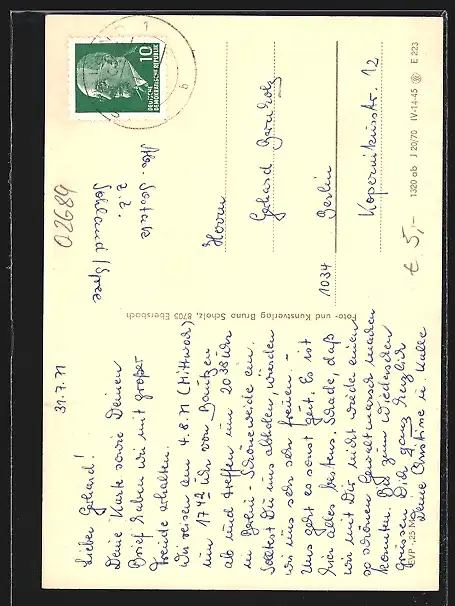 31.7.71
Lieber Gerhard!
Deine Karte sowie Deinen
Brief haben wir mit großer
Freude erhalten.
Wir reisen am 4.8.71 (Mittwoch)
um 17⁴² Uhr von Bautzen
ab und treffen um 20³⁸ Uhr
in Berlin-Schöneweide ein.
Solltest Du uns abholen, würden
wir uns sehr freuen. –
Uns geht es sonst gut. Es ist
hier alles bestens. Schade, daß
wir mit Dir nicht wieder einen
so schönen Gewaltmarsch machen
konnten. Bis zum Wiedersehen
grüssen Dich ganz herzlich
Deine Christine u. Kalle
EVP -,25 M
Foto- und Kunstverlag Bruno Scholz, 8705 Ebersbach
10
DEUTSCHE
DEMOKRATISCHE REPUBLIK
b
Abs.
z. Z.
Sohland / Spree
02689
Herrn
Gerhard
1034 Berlin
Kopernikusstr. 12
€ 5,-
1320 ab J 20/70 IV-14-45 E 223